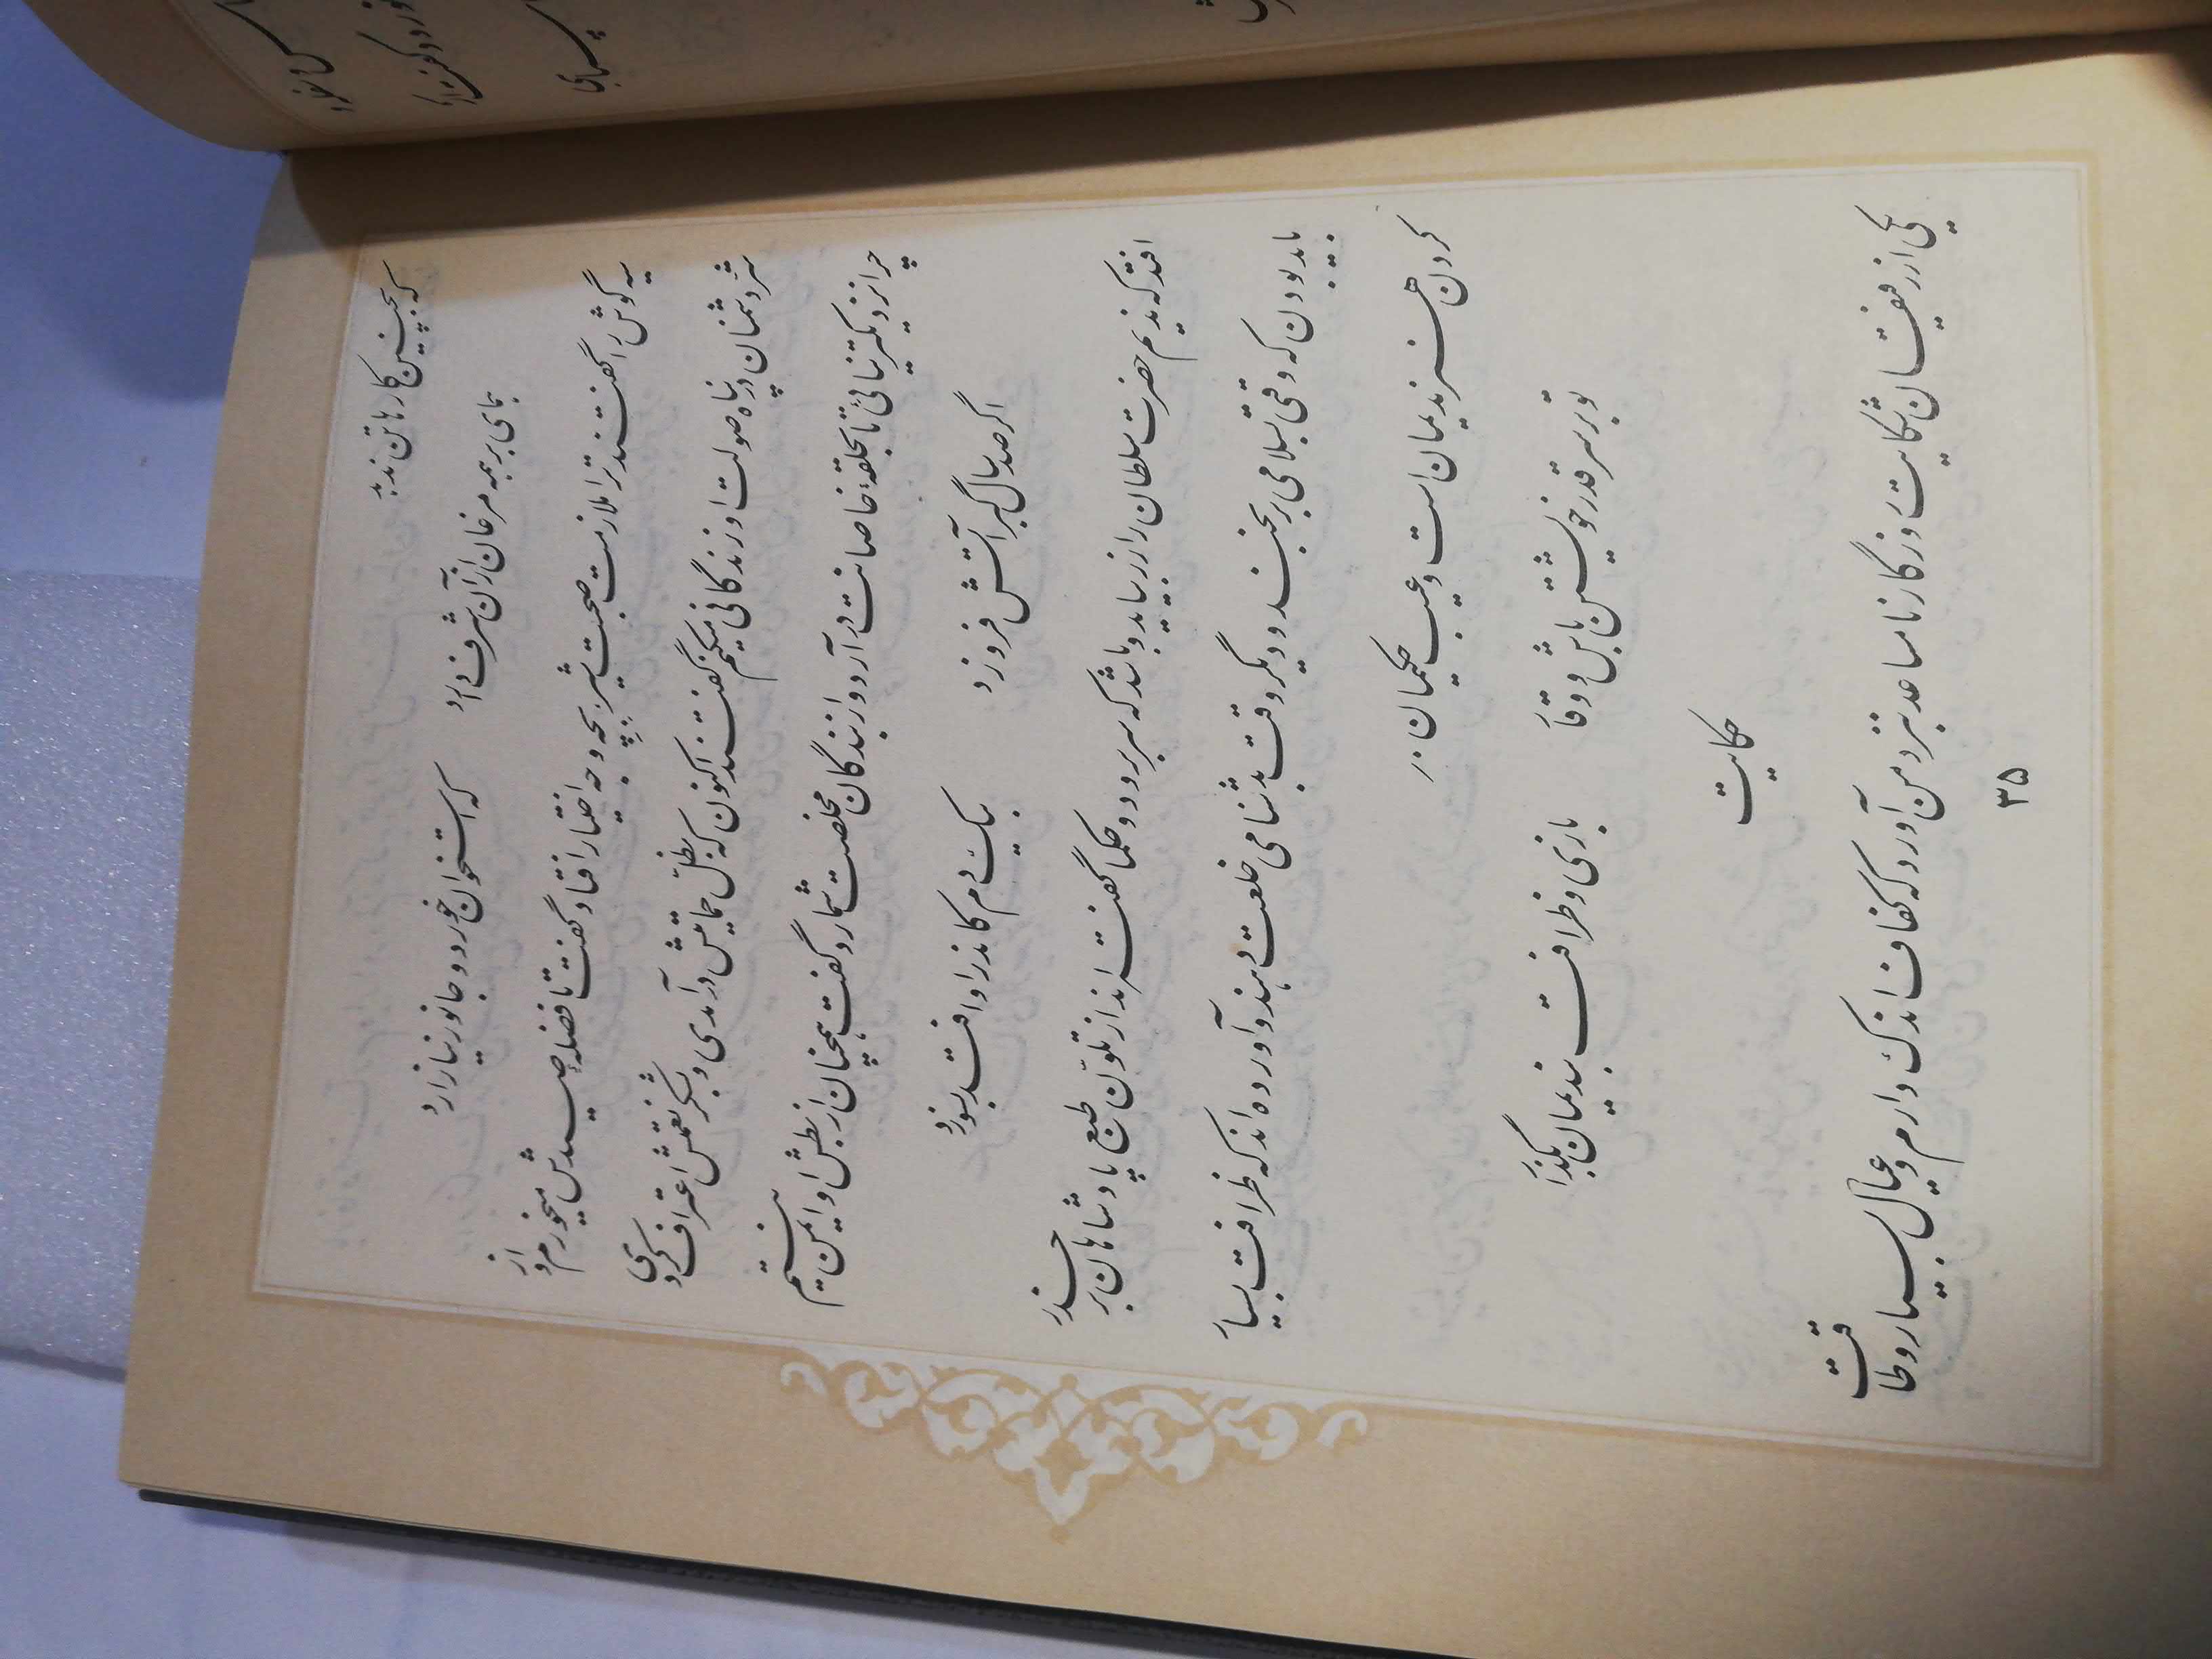 که بچنین کارها تن ندهد
همای بر همه مرغان از آن شرف دارد
که استخوان خورد و جانور نیازارد
سیه گوش را گفتند ترا ملازمت صحبت شیر بچه وجه اختیار افتاد گفت تا فضله صیدش میخورم و از
شر دشمنان در پناه صولت او زندگانی میکنم گفتندش اکنون که بظل حمایتش درآمدی و بشکر نعمتش اعتراف کردی
چرا نزدیکتر نیائی تا بحلقه خاصانت درآرد و از بندگان مخلصت شمارد گفت همچنان از بطش او ایمن نیستم
اگر صد سال گبر آتش فروزد
بیک دم کاندر او افتد بسوزد
افتد که ندیم حضرت سلطان را زر بیاید و باشد که سر برود و حکما گفته‌اند از تلون طبع پادشاهان بر حذر
باید بودن که وقتی بسلامی برنجند و دیگر وقت بدشنامی خلعت دهند و آورده‌اند که ظرافت بسیار
کردن هنر ندیمان است و عیب حکیمان
تو بر سر قدر خویشتن باش و وقار
بازی و ظرافت بندیمان بگذار
حکایت
یکی از رفیقان شکایت روزگار نامساعد بنزد من آورد که کفاف اندک دارم و عیال بسیار و طاقت
۳۵